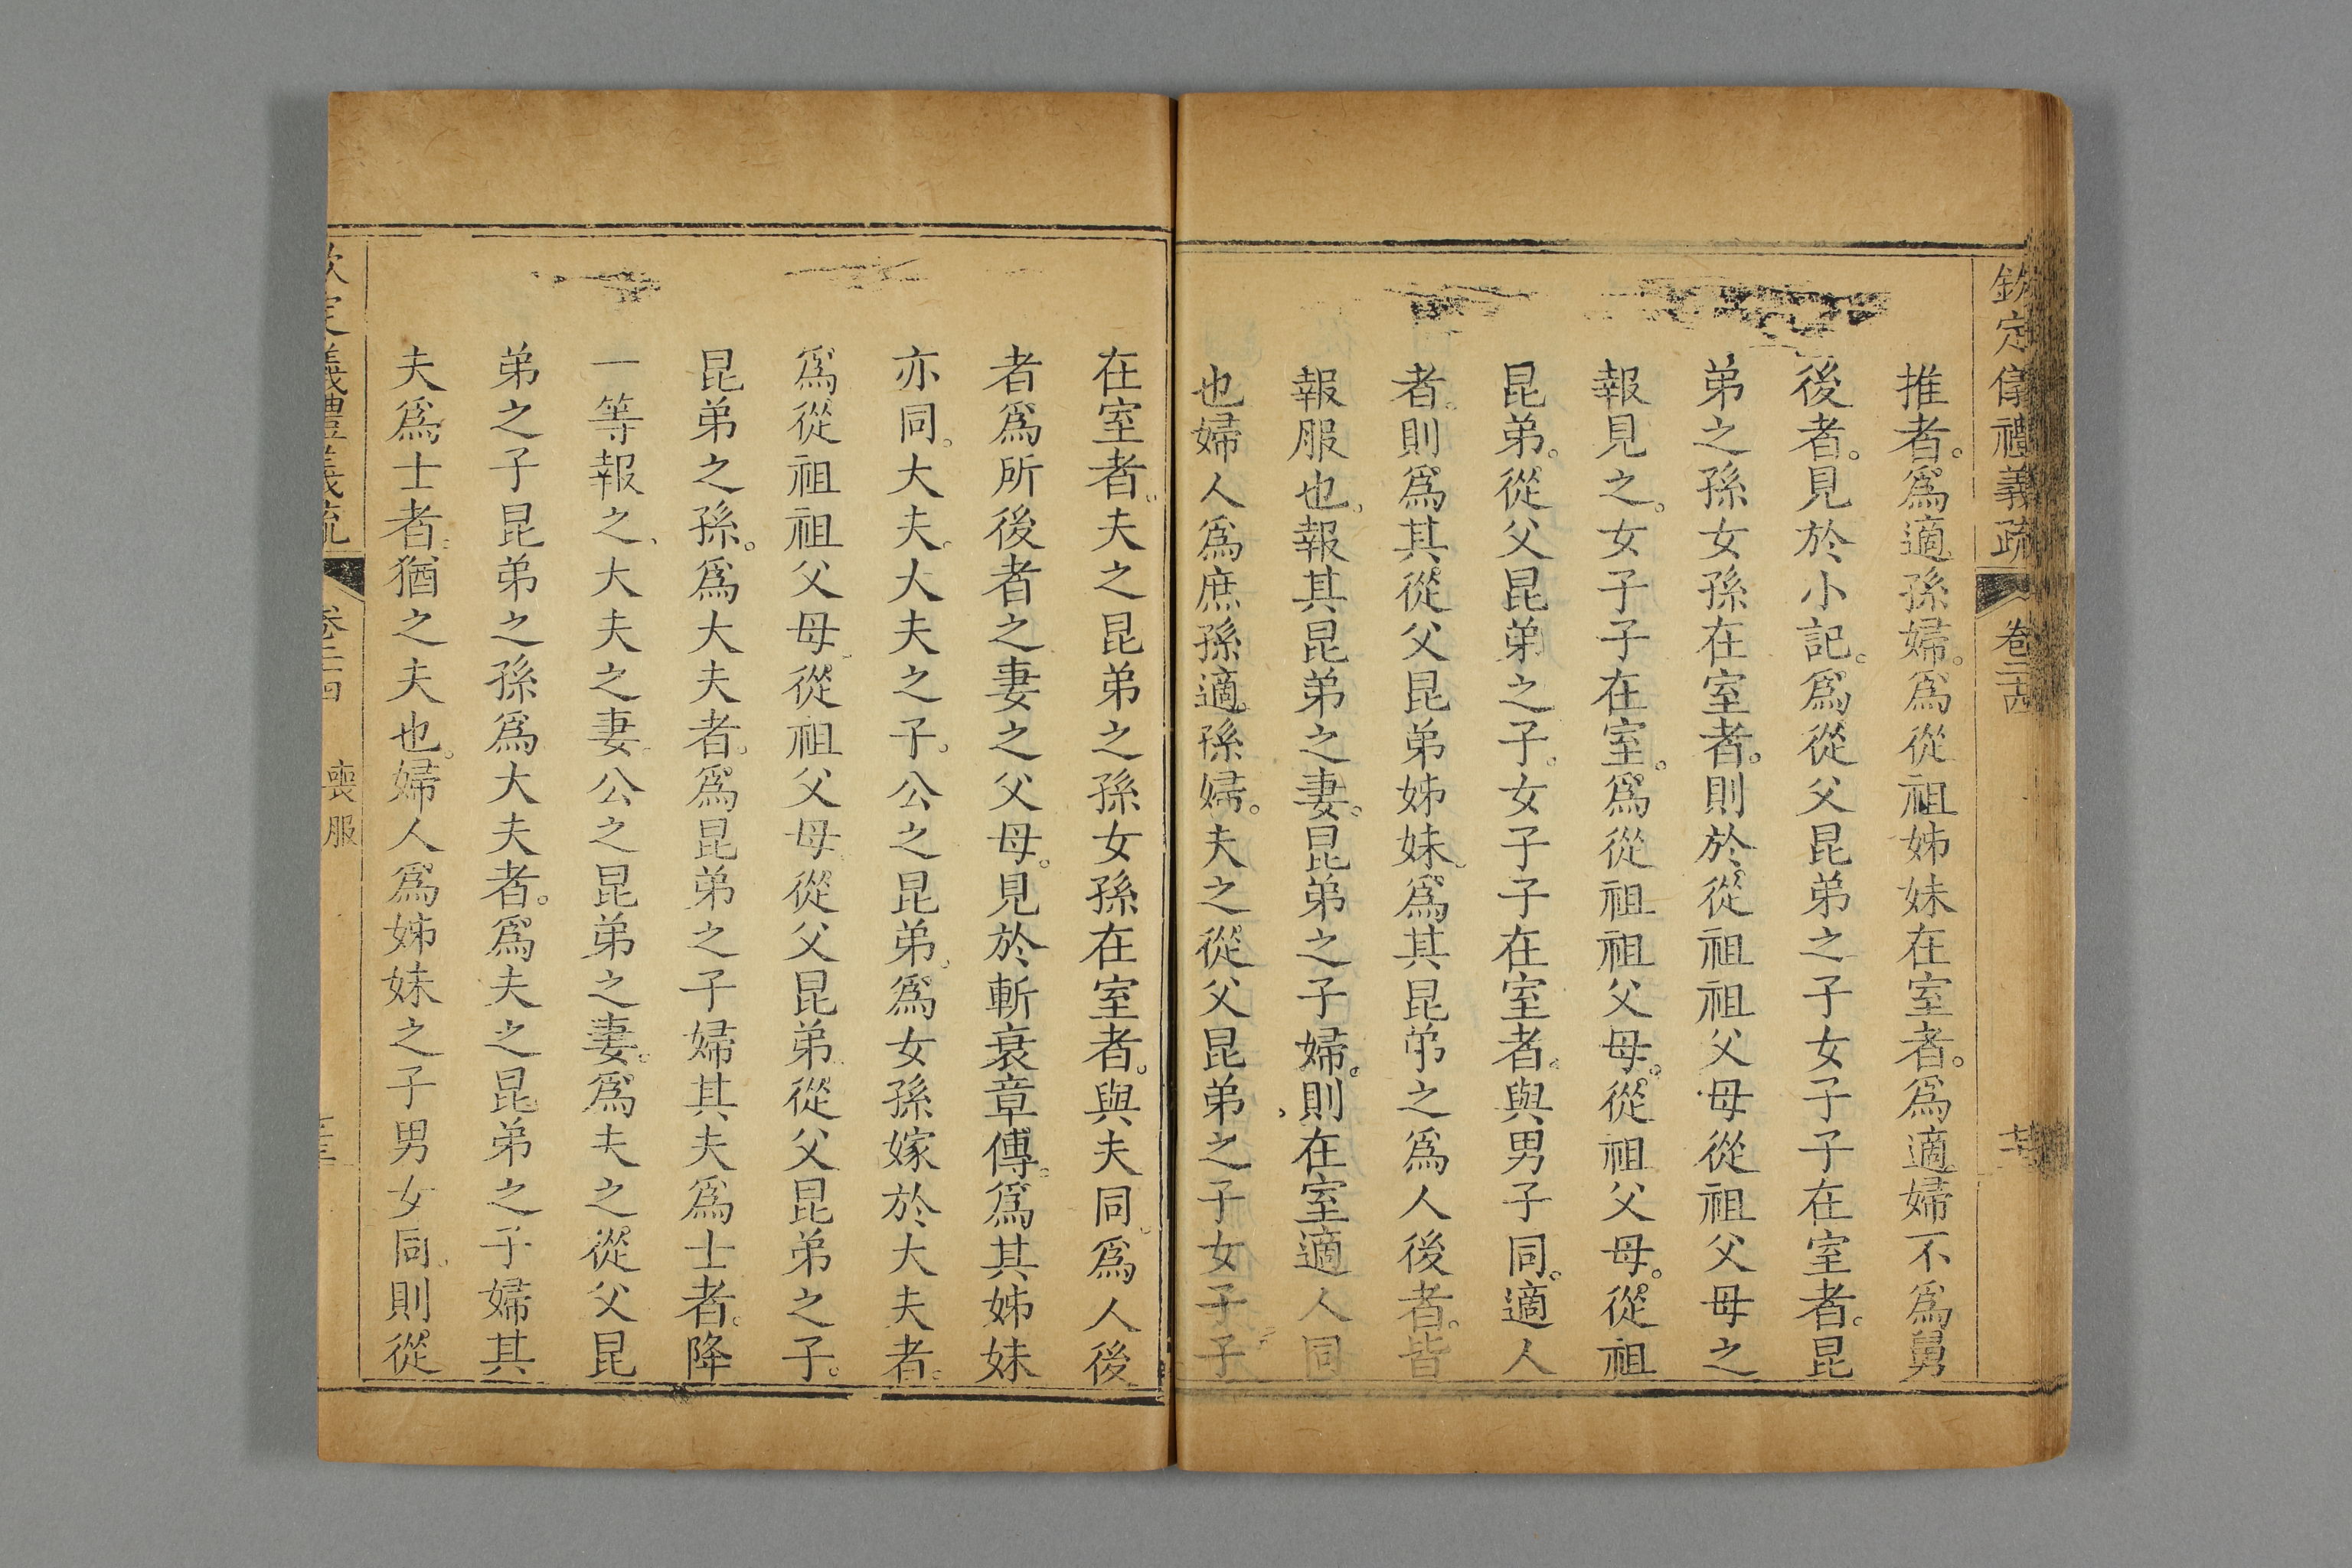 欽定儀禮義疏 卷二十四
推者。爲適孫婦。爲從祖姊妹在室者。爲適婦不爲舅
後者。見於小記。爲從父昆弟之子女子子在室者。昆
弟之孫女孫在室者。則於從祖祖父母從祖父母之
報見之。女子子在室。爲從祖祖父母。從祖父母。從祖
昆弟。從父昆弟之子。女子子在室者。與男子同。適人
者。則爲其從父昆弟姊妹。爲其昆弟之爲人後者。皆
報服也。報其昆弟之妻。昆弟之子婦。則在室適人同
也婦人爲庶孫適孫婦。夫之從父昆弟之子女子子
在室者。夫之昆弟之孫女孫在室者。與夫同。爲人後
者爲所後者之妻之父母。見於斬衰章傳。爲其姊妹
亦同。大夫。大夫之子。公之昆弟。爲女孫嫁於大夫者。
爲從祖祖父母。從祖父母。從父昆弟。從父昆弟之子。
昆弟之孫。爲大夫者。爲昆弟之子婦其夫爲士者。降
一等報之、大夫之妻。公之昆弟之妻。爲夫之從父昆
弟之子昆弟之孫爲大夫者。爲夫之昆弟之子婦其
夫爲士者。猶之夫也。婦人爲姊妹之子男女同。則從
欽定儀禮義疏 卷二十四 喪服